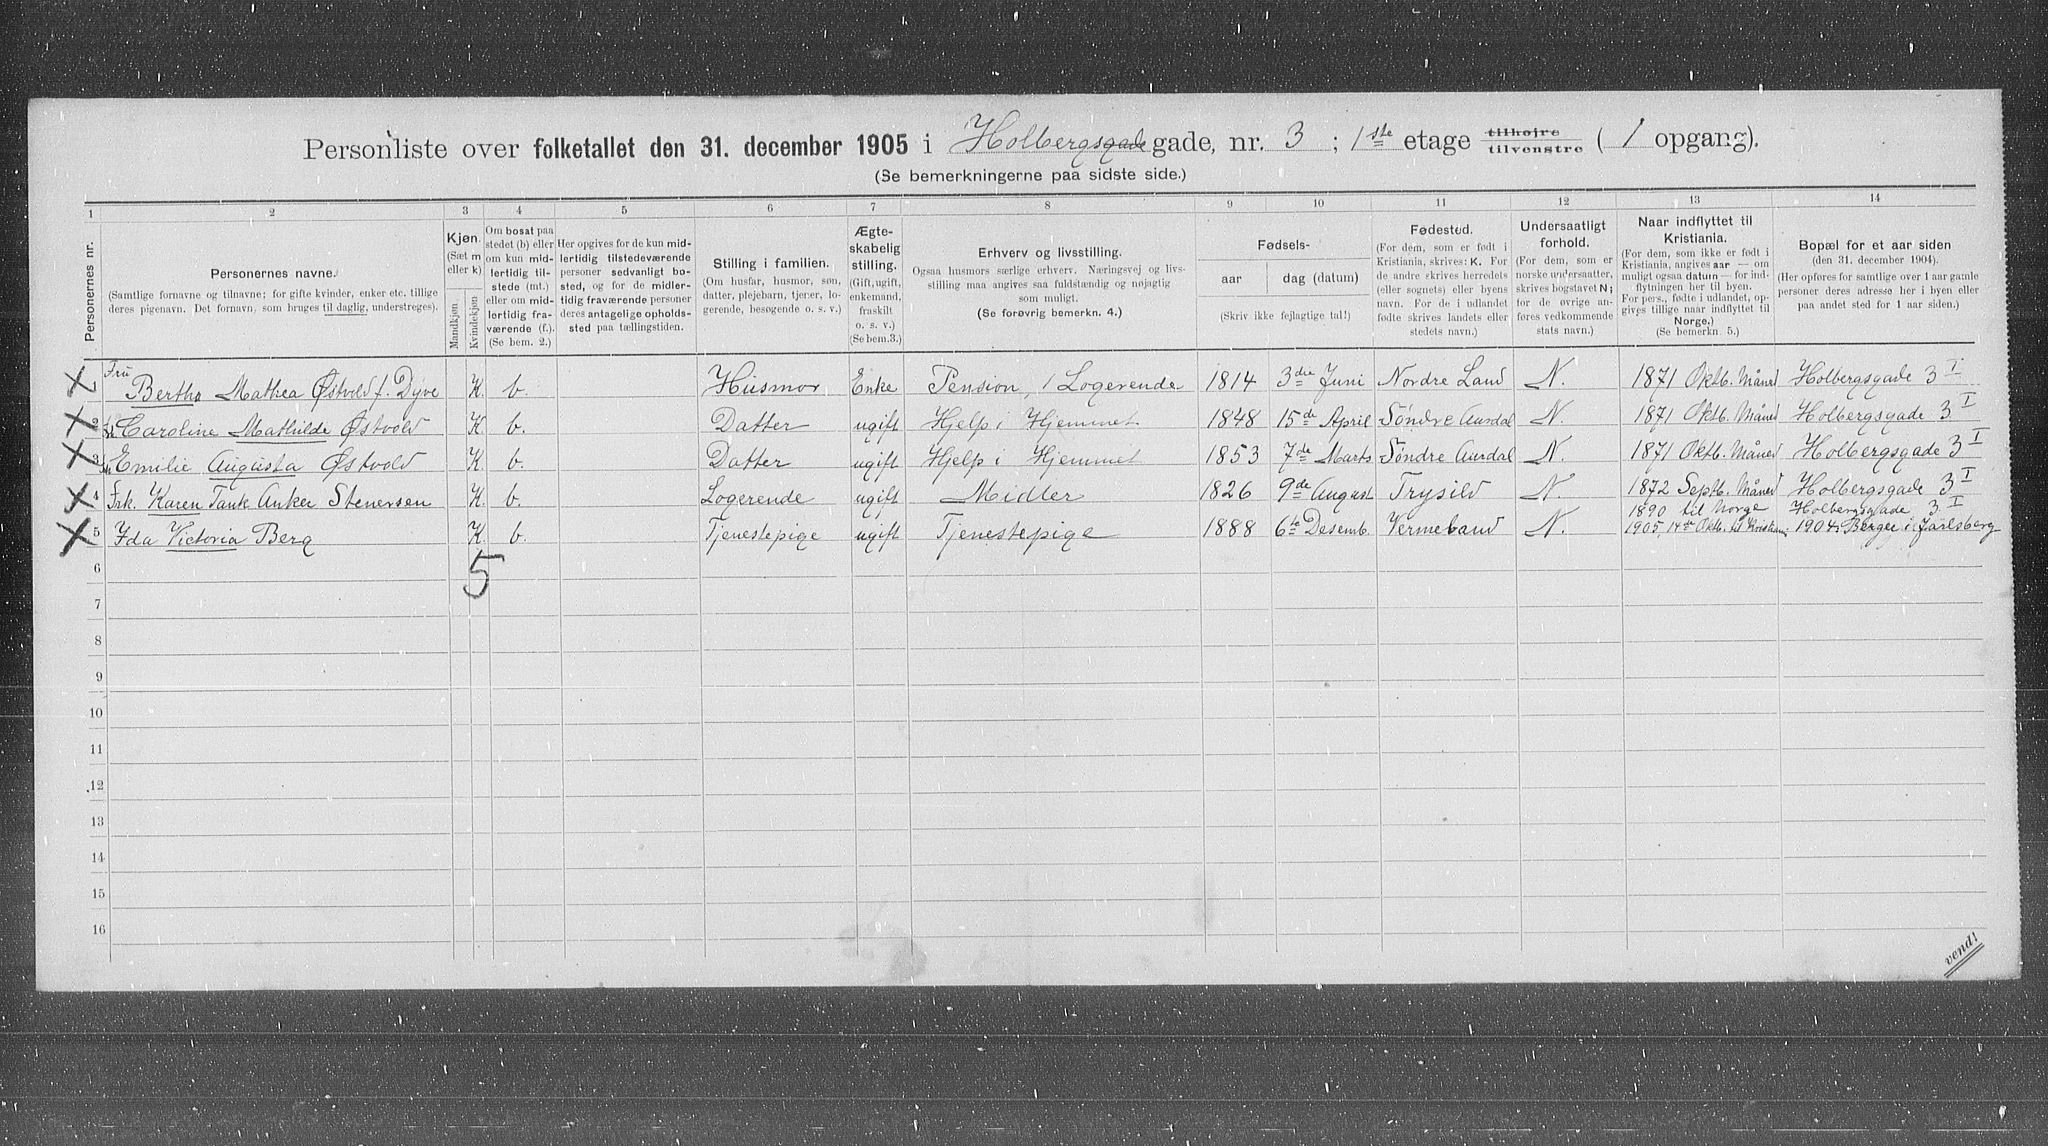 Personliste over folketallet den 31. december 1905 i Holbergsgade gade, nr. 3 ; 1ste etage tilhøjre tilvenstre ( 1 opgang).
(Se bemerkningerne paa sidste side.)
1 2 3 4 5 6 7 8 9 10 11 12 13 14
Personernes nr.
Personernes navne.
(Samtlige fornavne og tilnavne; for gifte kvinder, enker etc. tillige
deres pigenavn. Det fornavn, som bruges til daglig, understreges).
Kjøn.
(Sæt m
eller k)
Mandkjøn.
Kvindekjøn.
Om bosat paa
stedet (b) eller
om kun mid-
lertidig til-
stede (mt.)
eller om mid-
lertidig fra-
værende (f.).
(Se bem. 2.)
Her opgives for de kun mid-
lertidig tilstedeværende
personer sedvanligt bo-
sted, og for de midler-
tidig fraværende personer
deres antagelige opholds-
sted paa tællingstiden.
Stilling i familien.
(Om husfar, husmor, søn,
datter, plejebarn, tjener, lo-
gerende, besøgende o. s. v.)
Ægte-
skabelig
stilling.
(Gift, ugift,
enkemand,
fraskilt
o. s. v.)
(Se bem. 3.)
Erhverv og livsstilling.
Ogsaa husmors særlige erhverv. Næringsvej og livs-
stilling maa angives saa fuldstændig og nøjagtig
som muligt.
(Se forøvrig bemerkn. 4.)
Fødsels-
aar
dag (datum)
(Skriv ikke fejlagtige tal!)
Fødested.
(For dem, som er født i
Kristiania, skrives: K. For
de andre skrives herredets
(eller sognets) eller byens
navn. For de i udlandet
fødte skrives landets eller
stedets navn.)
Undersaatligt
forhold.
(For dem, som er
norske undersaatter,
skrives bogstavet N;
for de øvrige an-
føres vedkommende
stats navn.)
Naar indflyttet til
Kristiania.
(For dem, som ikke er født i
Kristiania, angives aar — om
muligt ogsaa datum — for ind-
flytningen her til byen.
For pers., fødte i udlandet, op-
gives tillige naar indflyttet til
Norge.)
(Se bemerkn. 5.)
Bopæl for et aar siden
(den 31. december 1904).
(Her opføres for samtlige over 1 aar gamle
personer deres adresse her i byen eller
paa andet sted for 1 aar siden.)
Fru
Bertha Mathea Østvold f. Dyve K. b. Husmor Enke Pension, / Logerende 1814 3dre Juni Nordre Land N. 1871 Oktb. Måned Holbergsgade 3 I
2 Caroline Mathilde Østvold K. b. Datter ugift Hjelp i Hjemmet 1848 15de April Søndre Aurdal N. 1871 Oktb. Måned Holbergsgade 3 I
3 Emilie Augusta Østvold K. b. Datter ugift Hjelp i Hjemmet 1853 7de Marts Søndre Aurdal N. 1871 Oktb. Måned Holbergsgade 3 I
4 Frk. Karen Tank Anker Stenersen K. b. Logerende ugift Midler 1826 9de August Trysild N. 1872 Septb. Måned Holbergsgade 3 I
1890 til Norge Holbergsgade 3 I
5 Ida Victoria Berg K b. Tjenestepige ugift Tjenestepige 1888 6te Desemb. Vermeland N. 1905, 14de Oktb. til Kristian: 1904. Berger i Jarlsberg
5
6
7
8
9
10
11
12
13
14
15
16
vend!